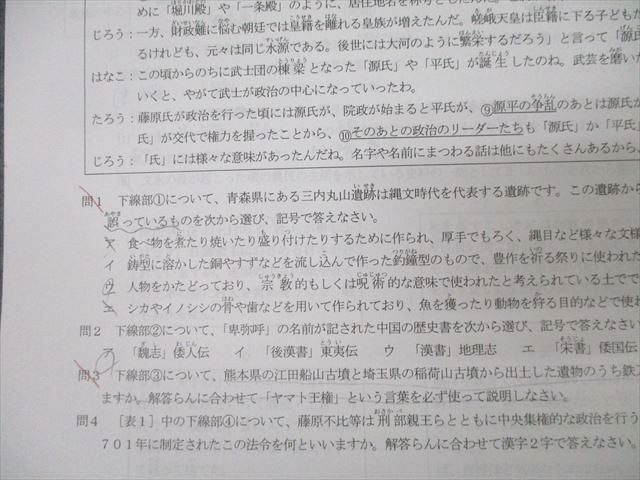 めに「堀川殿」や「一条殿」のように、居住地名を称号とした
じろう：一方、財政難に悩む朝廷では皇籍を離れる皇族が増えたんだ。嵯峨天皇は臣籍に下る子ども
るけれども、元々は同じ水源である。後世には大河のように繁栄するだろう」と言って「源
はなこ：この頃からのちに武士団の棟梁となった「源氏」や「平氏」が誕生したのね。武芸を磨い
いくと、やがて武士が政治の中心になっていったわ。
たろう：藤原氏が政治を行った頃には源氏が、院政が始まると平氏が、⑨源平の争乱のあとは源氏が
氏」が交代で権力を握ったことから、⑩そのあとの政治のリーダーたちも「源氏」か「平氏」
じろう：「氏」には様々な意味があったんだね。名字や名前にまつわる話は他にもたくさんあるから、
問1　下線部①について、青森県にある三内丸山遺跡は縄文時代を代表する遺跡です。この遺跡から
誤っているものを次から選び、記号で答えなさい。
ア　食べ物を煮たり焼いたり盛り付けたりするために作られ、厚手でもろく、縄目など様々な文様
イ　鋳型に溶かした銅やすずなどを流し込んで作った釣鐘型のもので、豊作を祈る祭りに使われた
ウ　人物をかたどっており、宗教的もしくは呪術的な意味で使われたと考えられている土で
エ　シカやイノシシの骨や歯などを用いて作られており、魚を獲ったり動物を狩る目的などで使わ
問2　下線部②について、「卑弥呼」の名前が記された中国の歴史書を次から選び、記号で答えなさい
ア　「魏志」倭人伝　イ　「後漢書」東夷伝　ウ　「漢書」地理志　エ　「宋書」倭国伝
問3　下線部③について、熊本県の江田船山古墳と埼玉県の稲荷山古墳から出土した遺物のうち鉄
ますか。解答らんに合わせて「ヤマト王権」という言葉を必ず使って説明しなさい。
問4　［表1］中の下線部④について、藤原不比等は刑部親王らとともに中央集権的な政治を行う
701年に制定されたこの法令を何といいますか。解答らんに合わせて漢字2字で答えなさい。